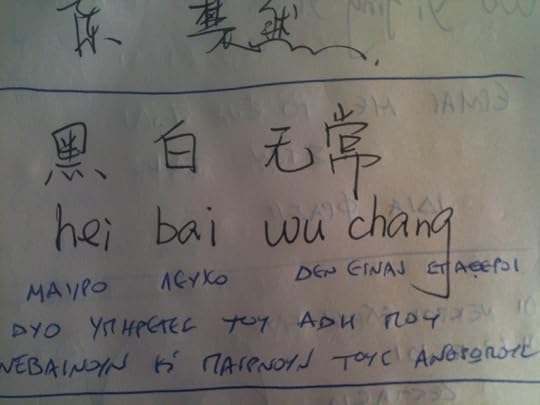 陈
黑 白 无 常
hei bai wu chang
ΜΑΥΡΟ ΛΕΥΚΟ ΔΕΝ ΕΙΝΑΙ ΣΤΑΘΕΡΟΙ
ΔΥΟ ΥΠΗΡΕΤΕΣ ΤΟΥ ΑΔΗ ΠΟΥ
ΝΕΒΑΙΝΟΥΝ Κ' ΠΑΙΡΝΟΥΝ ΤΟΥΣ ΑΝΘΡΩΠΟΥΣ